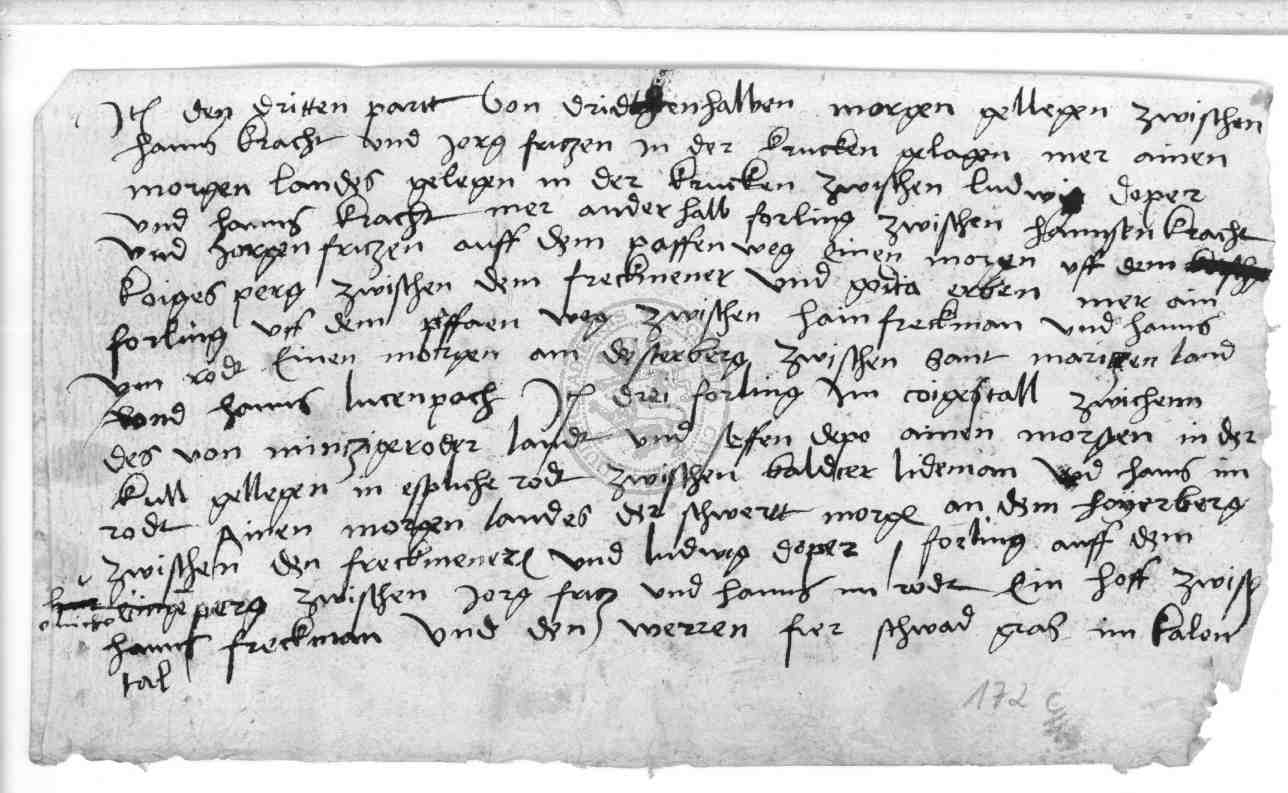 Jt den dritten partt von dridthenhalben morgen gellegen zwischen
hanns kracht und jorg fritzen in der krucken gelagen mer ainen
morgen landes gelegen in der krucken zwischen ludwig doper
und hanns kracht mer anderhalb forling zwischen hannsen kracht
und jorgen fritzen auff dem paffen weg einen morgen uff dem
koiges perg zwischen dem freckmener und erben mer ain
forling uff dem pffaen weg zwischen hain freckman und hanns
vom rodt Einen morgen am desterberg zwischen sant land
vond hanns lucenpach Jt drei forling im coigestall zwichenn
des von mintzigeroder landt und steffen depo ainen morgen in der
kull gellegen in espliche rodt zwischen baldter lideman vnd hanns im
rodt Ainen morgen landes der schwertt morge an dem hoyerberg
zwischen den freckmener und ludwig doper 1 forling auff dem
perg zwischen jorg fritz und hanns im rodt Ein hoff zwisch
hanns freckman und den werren fier schwad gras im kalen
tal
172 c